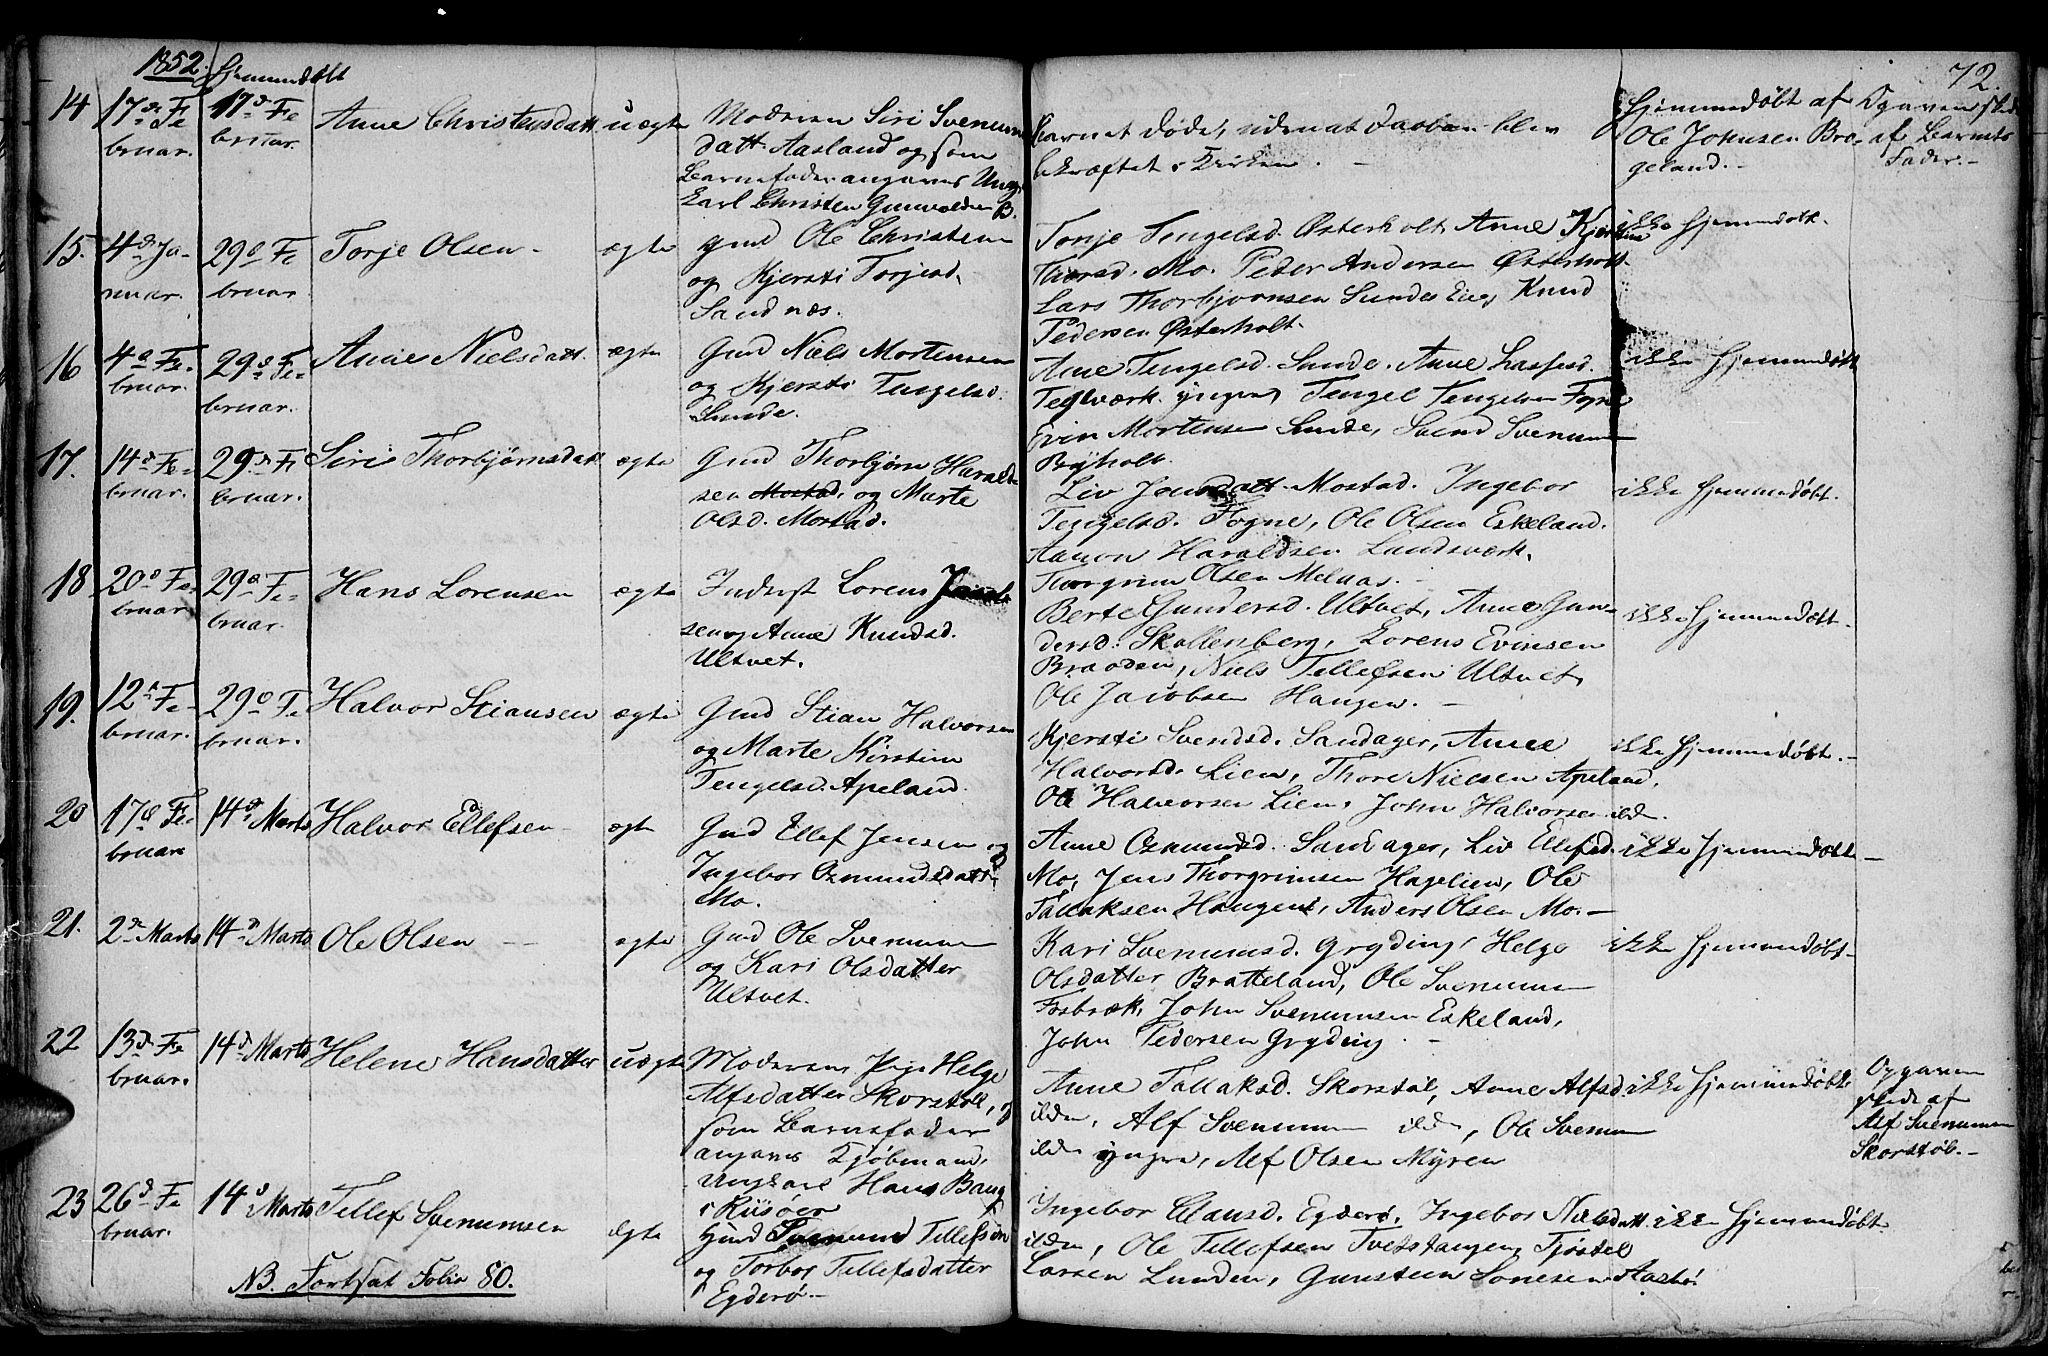 1852. Hjemmedøbt
72.
14 17de Fe 17de Fe Anne Christensdatt. uægte Moderen Siri Svenums
bruar. bruar.
datt. Aasland og som
Barnefader angaves Ung-
karl Christen Gunvaldsen B.
Barnet døde, uden at Daaben blev
bekræftet i Kirken. —
Hjemmedøbt af
Ole Johnsen Bre-
geland. —
Opgaven skede
af Barnets
Fader. —
15. 4de Ja- 29de Fe Torje Olsen — ægte Gmd Ole Christens
nuar. bruar.
og Kjersti Torjesd.
Sandnæs.
Tonje Tengelsd. Østerholt, Anne
Mo. Peder Andersen Østerholt
Lars Thorbjørnsen Sunde Eie, Knud
Pedersen Østerholt.
ikke Hjemmedøbt.
16 4de Fe- 29de Fe- Anne Nielsdatt. ægte Gmd Niels Mortensen
bruar. bruar.
og Kjersti Tengelsd.
Sunde.
Anne Tengelsd. Sunde. Anne Lassesd.
Teglværk yngre, Tengel Tengelsen Fogne
Evin Mortensen Sunde, Svend Svenum
ikke Hjemmedøbt
17. 14de Fe- 29de Fe Siri Thorbjørnsdatt ægte Gmd Thorbjørn Harald-
bruar. bruar.
sen Mostad, og Marte
Olsd. Mostad.
Liv Jonsdatt. Mostad. Ingebor
Tengelsd. Fogne, Ole Olsen Eskeland.
Aanon Haraldsen Landsverk.
Thorgrim Olsen Melaas. —
ikke Hjemmedøbt.
18 20de Fe- 29de Fe- Hans Lorensen ægte Inderst Lorens
bruar. bruar.
sen og Anne Knudsd.
Ultvet.
Berte Gundersd. Ultvet, Anne Gun-
dersd. Skallenberg, Lorens Evinsen
Braaden, Niels Tellefsen Ultvet,
Ole Jacobsen Haugen. —
ikke Hjemmedøbt.
19. 12te Fe- 29de Fe Halvor Stiansen ægte Gmd Stian Halvorsen
bruar. bruar.
og Marte Kirstine
Tengelsd. Apeland.
Kjersti Svendsd. Sandager, Anne
Halvorsd. Lien, Thore Nielsen Apeland,
Ole Halvorsen Lien, John Halvorsen ibd.
ikke Hjemmedøbt. —
20 17de Fe- 14de Marts Halvor Ellefsen — ægte Gmd Ellef Jensen og
bruar
Ingebor Osmundsdatt.
Mo.
Anne Osmundsd. Sandager, Liv Ellefsd.
Mo, Jens Thorgrimsen Hagelien, Ole
Tallaksen Haugen, Anders Olsen Mo. —
ikke Hjemmedøbt —
21. 2den Marts 14de Marts Ole Olsen — ægte Gmd Ole Svenum
og Kari Olsdatter
Ultvet.
Kari Svenumsd. Gryding, Helge
Olsdatter Bratteland, Ole Svenum
Fosbræk, John Svenumsen Eskeland,
John Pedersen Gryding. —
ikke Hjemmedøbt —
22 13de Fe 14de Marts Helene Hansdatter uægte Moderen Pige Helge
bruar.
Alfsdatter Skorstøl, og
som Barnefader
angaves Kjøbmand,
Ungkarl Hans Bang
i Riisøer
Anne Tallaksd. Skorstøl, Anne Alfsd
ibdn, Alf Svenum ibdn, Ole Svenum
ibdn yngre, Alf Olsen Myren
ikke Hjemmedøbt
Opgaven
skede af
Alf Svenumsen
Skorstøl. —
23 26de Fe 14de Marts Tellef Svenumsen ægte Gmd Svenum Tellefsen
bruar.
og Torbor Tellefsdatter
Egderø. —
Ingebor Clausd. Egderø. Ingebor Nielsdatt.
ibdn, Ole Tellefsen Tvedstangen, Tjøstel
Larsen Lunden, Gunsteen Sonesen Aasbø.
ikke Hjemmedøbt
NB. Fortsat Folio 80.